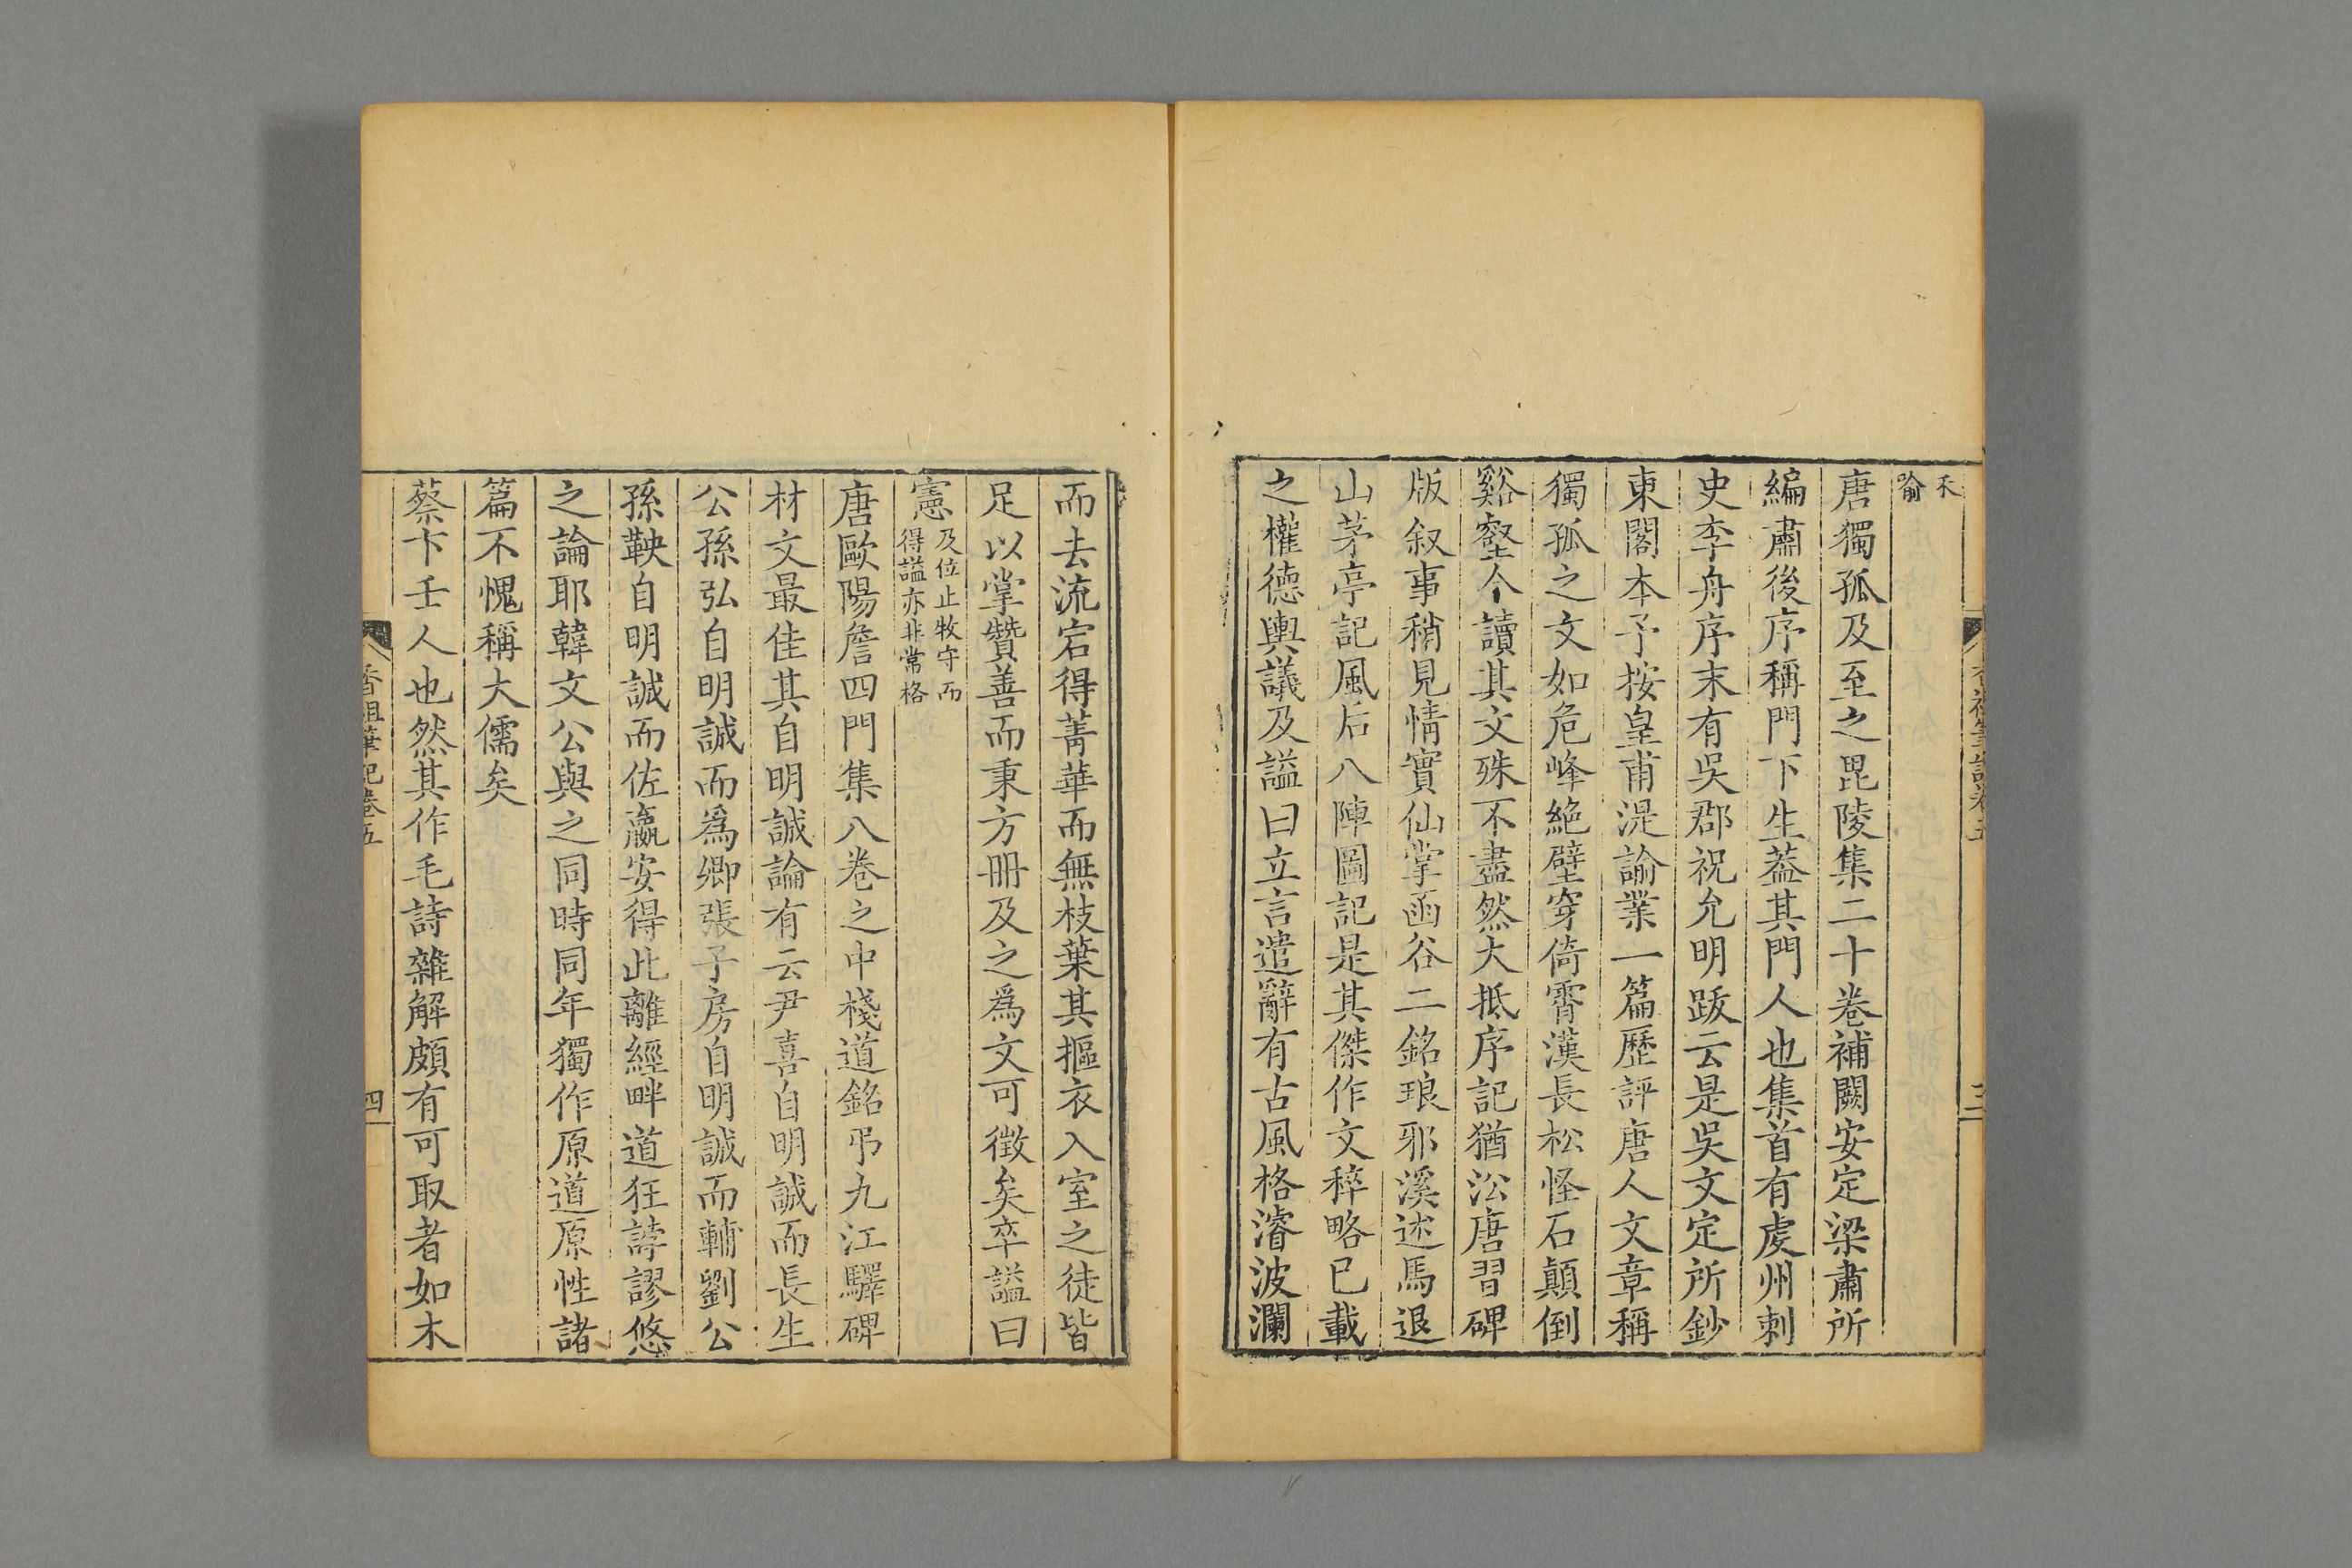 禾
喻
唐獨孤及至之毘陵集二十卷補闕安定梁肅所
編肅後序稱門下生葢其門人也集首有虔州刺
史李舟序末有吳郡祝允明跋云是吳文定所鈔
東閣本予按皇甫湜諭業一篇歷評唐人文章稱
獨孤之文如危峰絶壁穿倚霄漢長松怪石顛倒
谿壑今讀其文殊不盡然大抵序記猶㳂唐習碑
版叙事稍見情實仙掌函谷二銘琅邪溪述馬退
山茅亭記風后八陣圖記是其傑作文稡略已載
之權德輿議及謚曰立言遣辭有古風格濬波瀾
而去流宕得菁華而無枝葉其摳衣入室之徒皆
足以掌贊善而秉方冊及之爲文可徴矣卒謚曰
憲及位止牧守而
得謚亦非常格
唐歐陽詹四門集八卷之中棧道銘弔九江驛碑
材文最佳其自明誠論有云尹喜自明誠而長生
公孫弘自明誠而爲卿張子房自明誠而輔劉公
孫鞅自明誠而佐嬴安得此離經畔道狂誖謬悠
之論耶韓文公與之同時同年獨作原道原性諸
篇不愧稱大儒矣
蔡卞壬人也然其作毛詩雜解頗有可取者如木
香祖筆記卷五
四